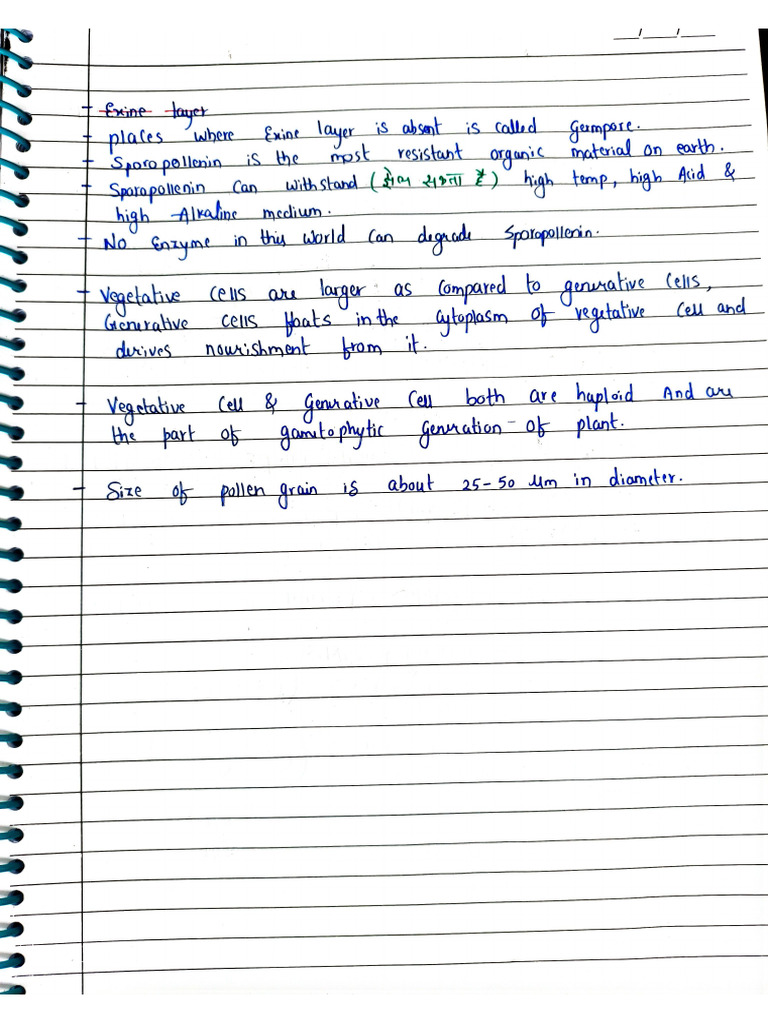 __/__/__
- Exine layer
- places where Exine layer is absent is called Germpore.
- Sporopollenin is the most resistant organic material on earth.
- Sporopollenin can withstand (झेल सकता है) high temp, high Acid &
high Alkaline medium.
- No Enzyme in this world can degrade Sporopollenin.
- Vegetative cells are larger as compared to generative cells,
Generative cells floats in the cytoplasm of vegetative cell and
derives nourishment from it.
- Vegetative cell & generative cell both are haploid And are
the part of gametophytic generation of plant.
- Size of pollen grain is about 25-50 μm in diameter.